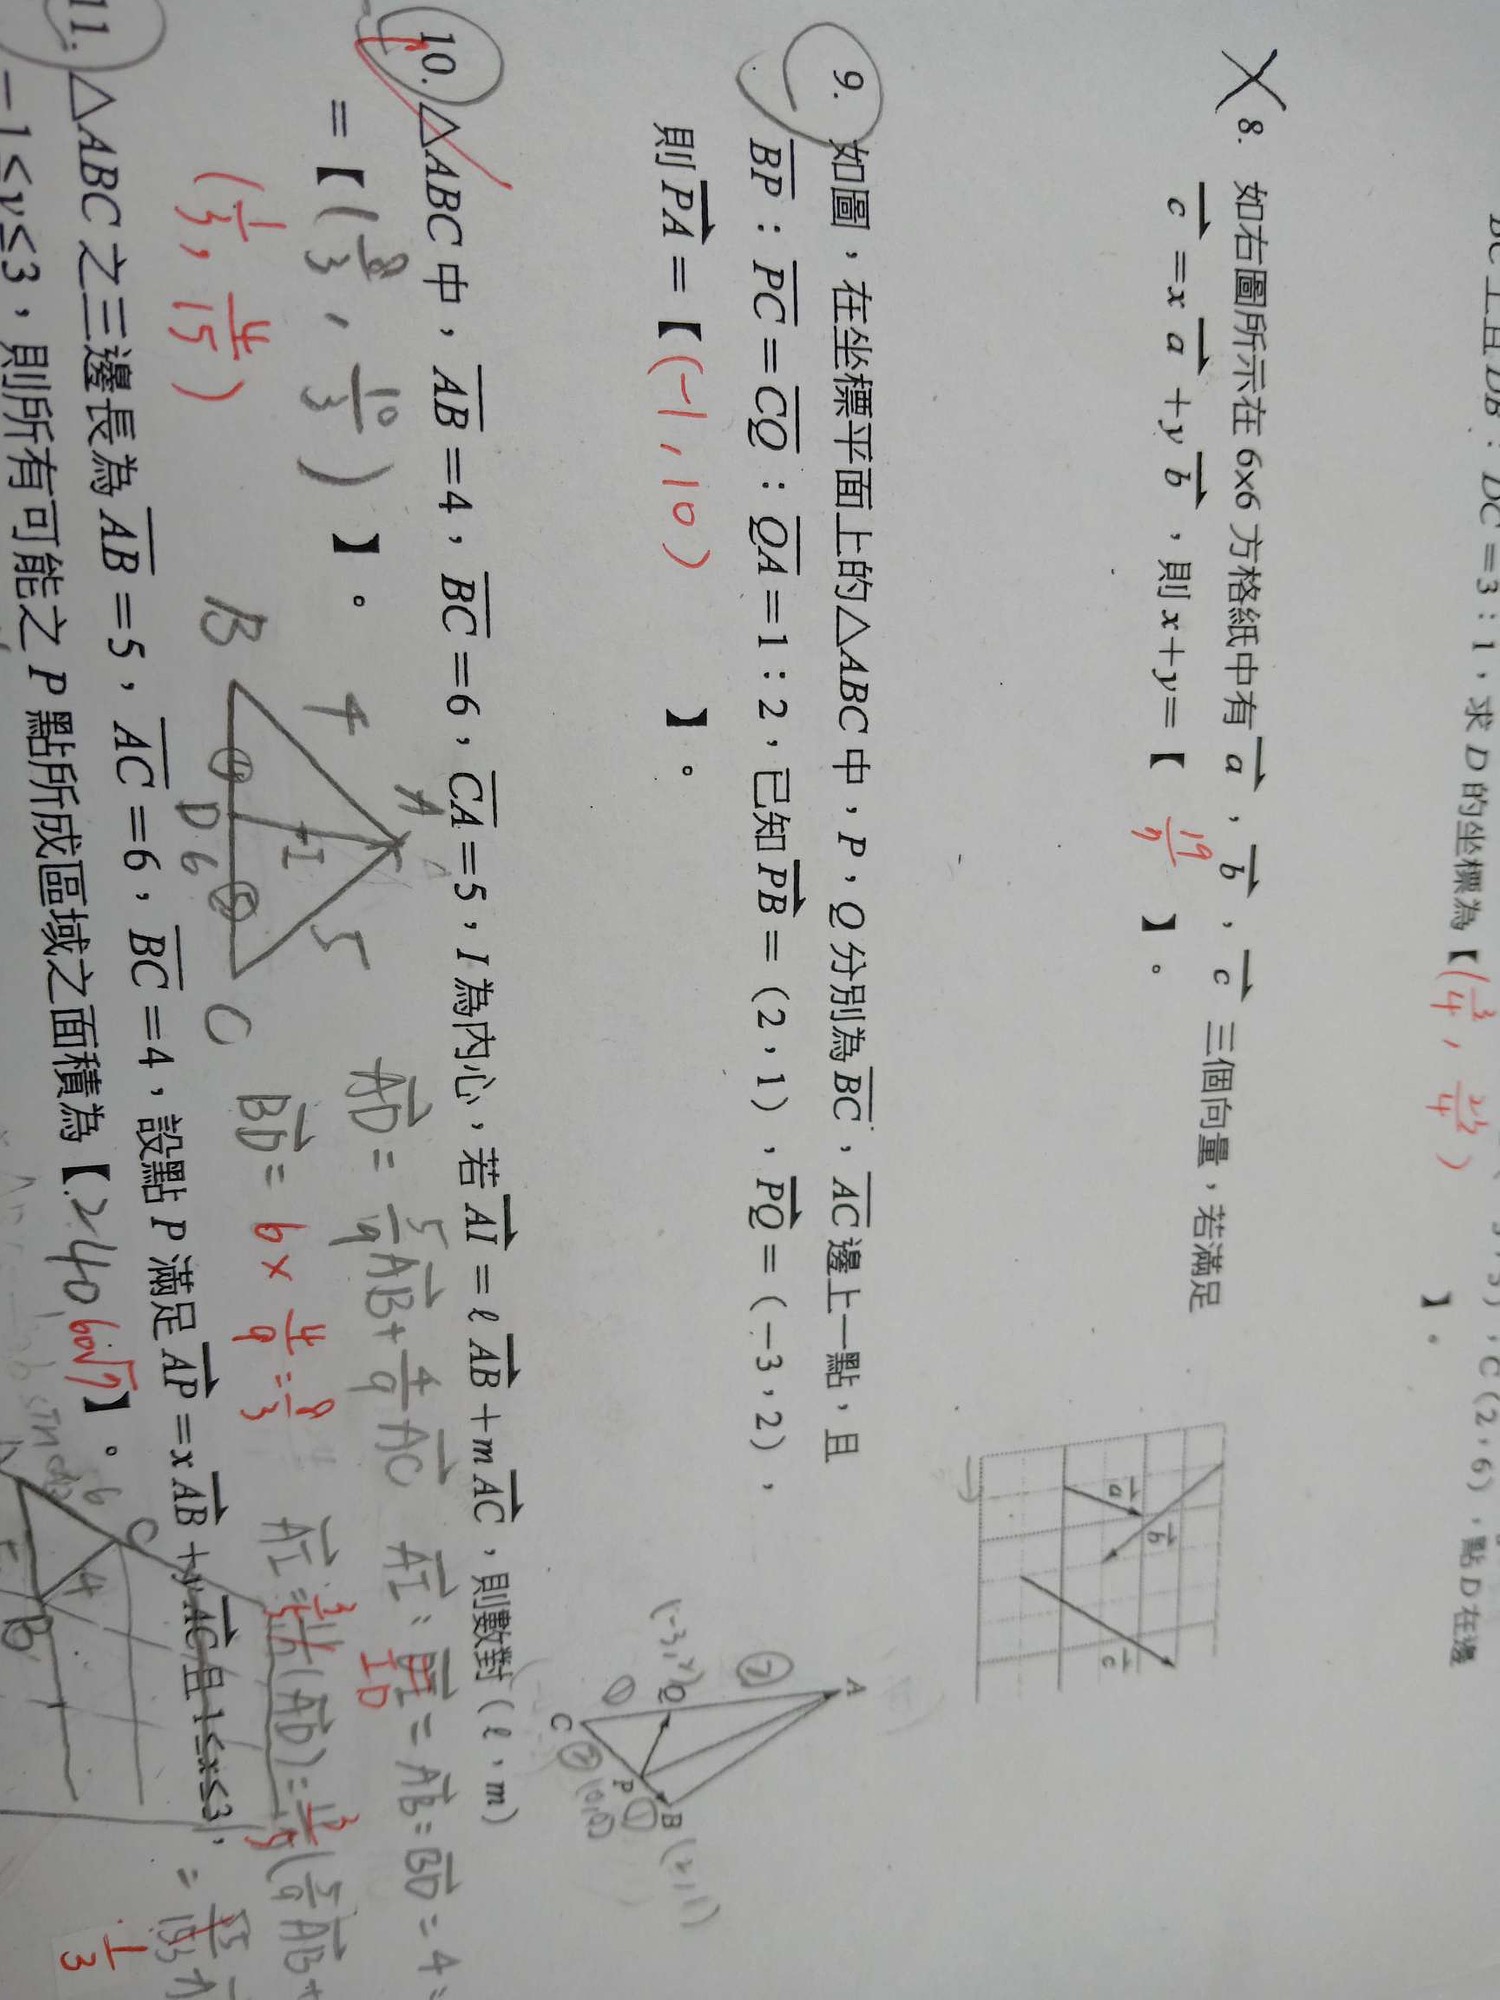 BC上且DB：DC=3：1，求D的坐標為【(3/4, 23/4)】。
C(2,6)，點D在邊
8. 如右圖所示在6x6方格紙中有a，b，c三個向量，若滿足
c=xa+yb，則x+y=【19/7】。
a
b
c
9. 如圖，在坐標平面上的△ABC中，P，Q分別為BC，AC邊上一點，且
BP：PC=CQ：QA=1：2，已知PB=(2,1)，PQ=(-3,2)，
則PA=【(-1,10)】。
A
(2)
(-3,2)Q
(1)
C
(2)
P
(0,0)
(1)
B
(2,1)
10. △ABC中，AB=4，BC=6，CA=5，I為內心，若AI=ℓAB+mAC，則數對(ℓ,m)
=【(8/3, 10/3)】。
(1/3, 4/15)
B
4
A
5
D
6
I
C
AD=5/9AB+4/9AC
BD=6×4/9=8/3
AI：ID=AB：BD=4：
11. △ABC之三邊長為AB=5，AC=6，BC=4，設點P滿足AP=xAB+yAC且1≤x≤3，
-1≤y≤3，則所有可能之P點所成區域之面積為【240 60√7】。
6
C
4
B
1/3